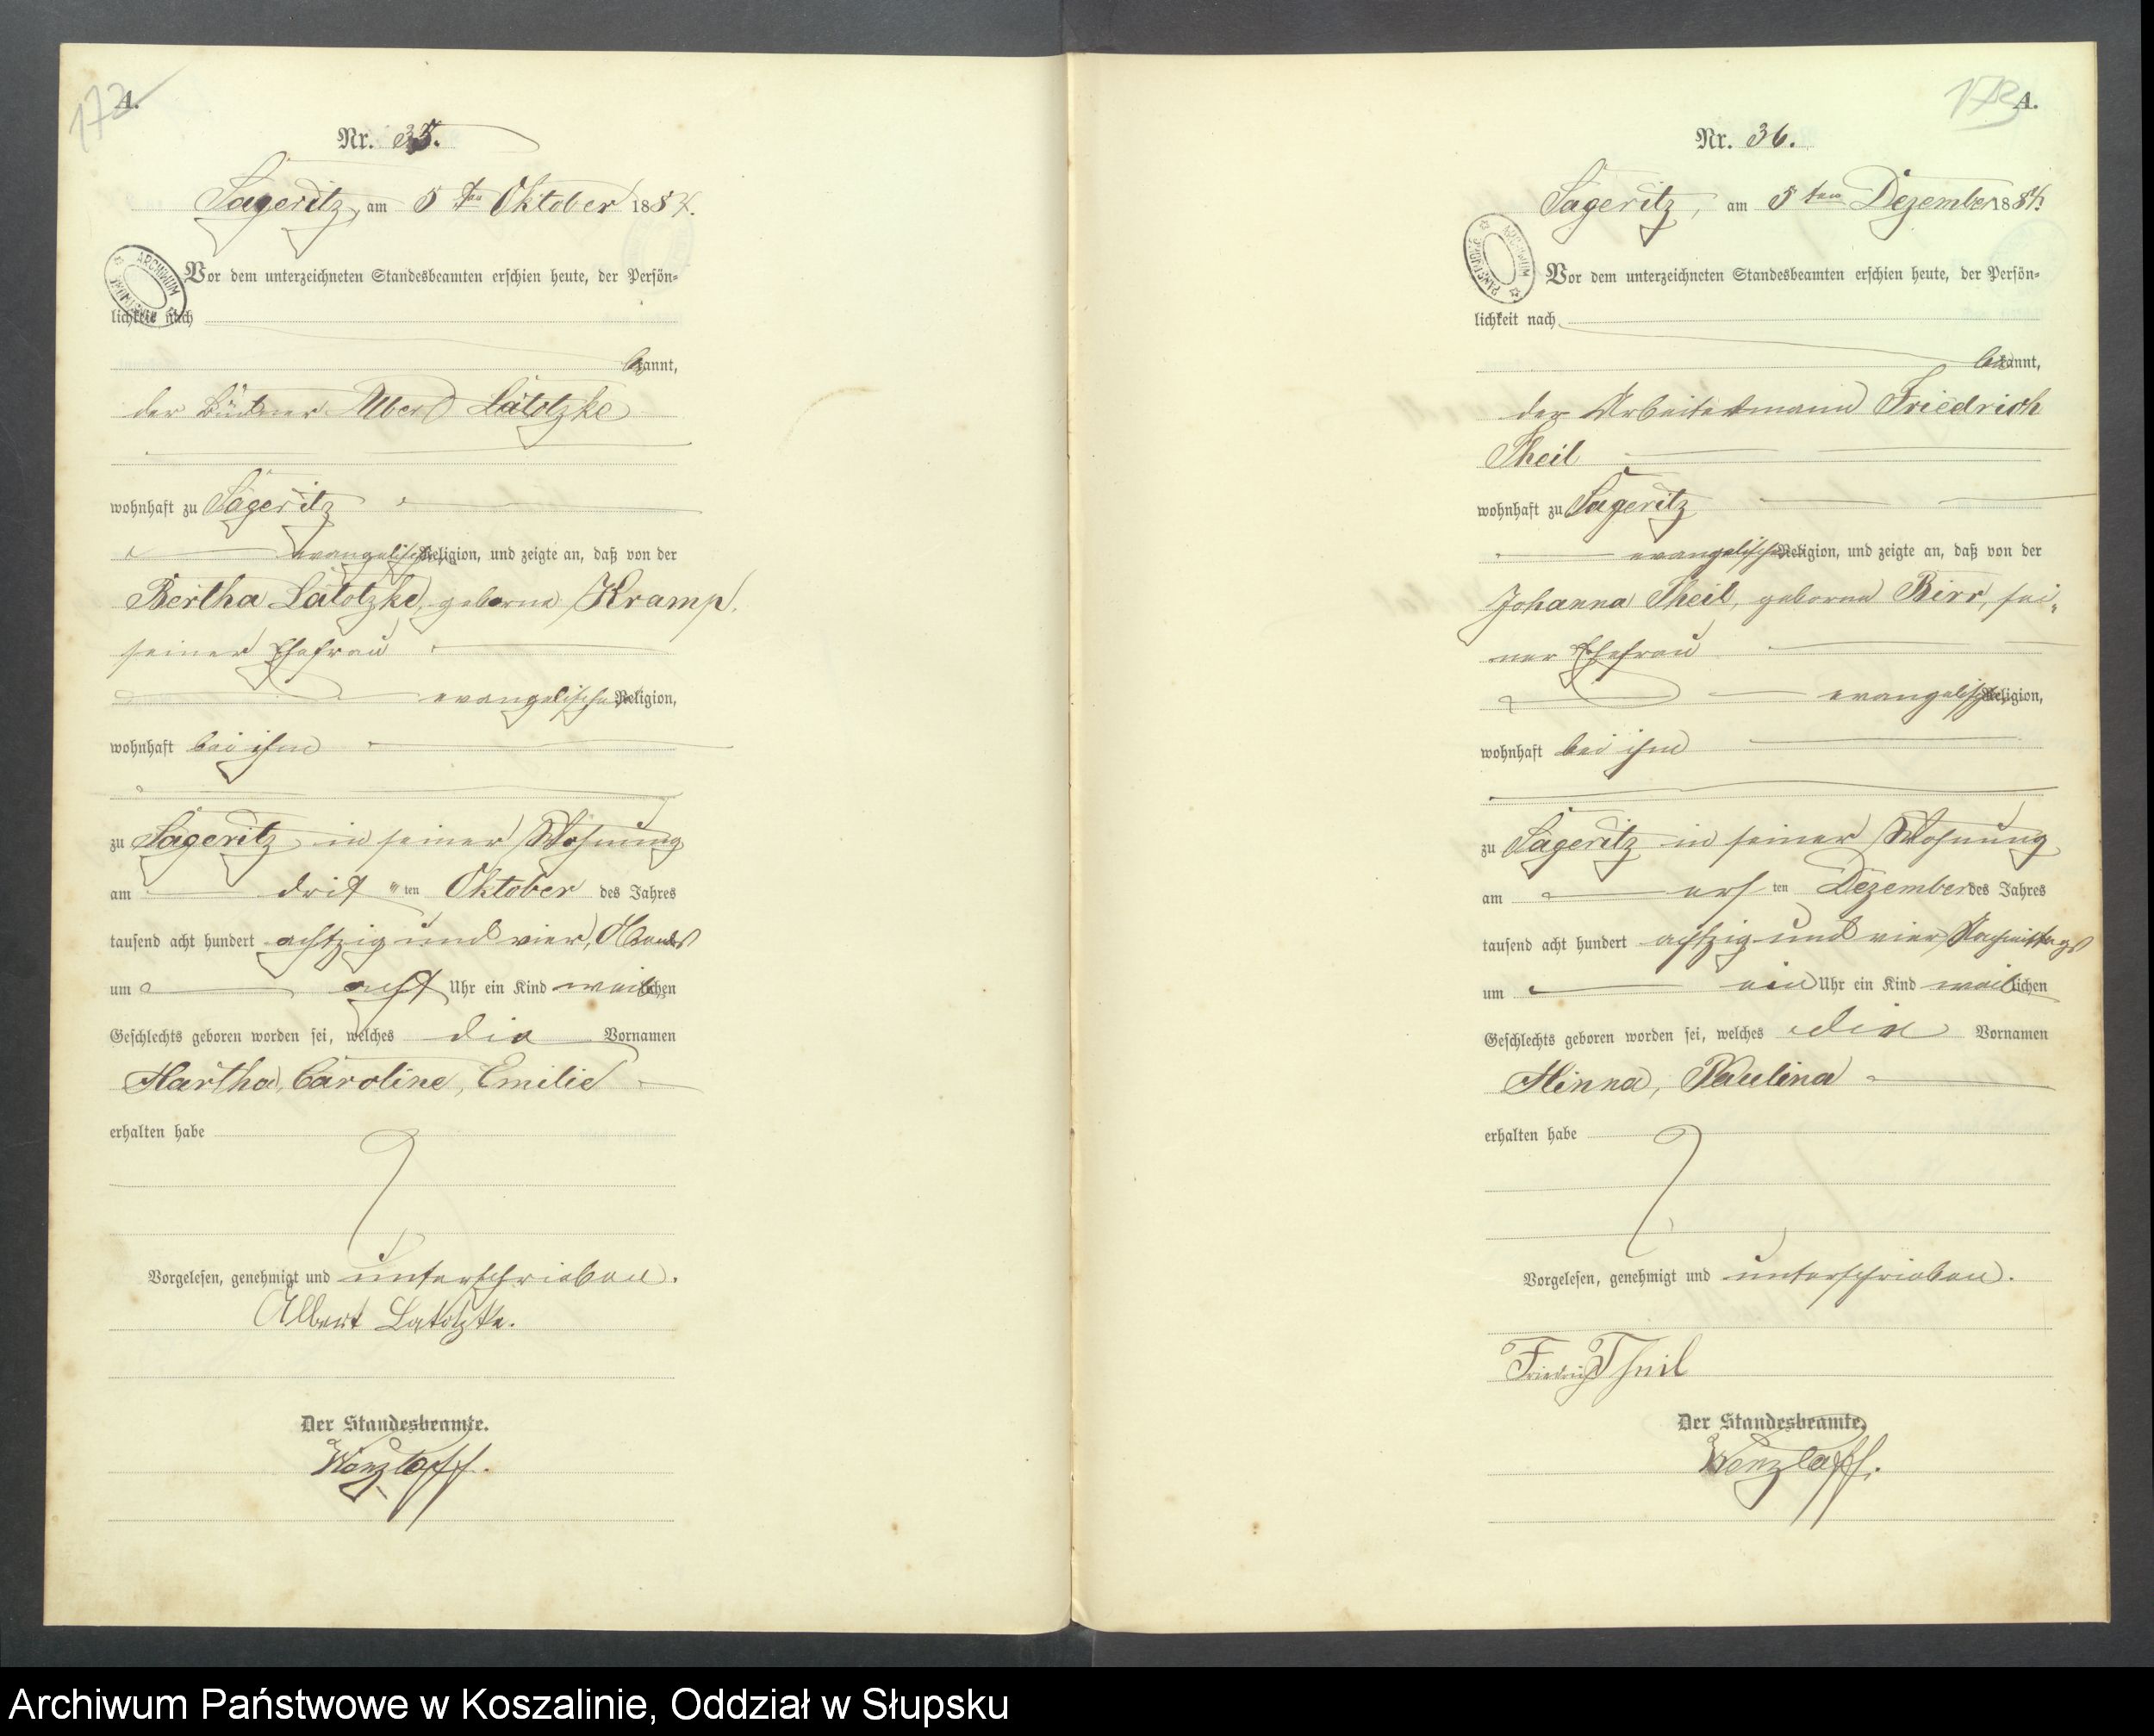 172
A.
Nr. 35.
Sageritz, am 5ten Oktober 1884.
ARCHIWUM PAŃSTWOWE
Vor dem unterzeichneten Standesbeamten erschien heute, der Persön-
lichkeit nach
bekannt,
der Büdner Albert Latotzke
wohnhaft zu Sageritz
evangelischer Religion, und zeigte an, daß von der
Bertha Latotzke, geborne Kramp,
seiner Ehefrau
evangelischer Religion,
wohnhaft bei ihm
zu Sageritz in seiner Wohnung
am dritten Oktober des Jahres
tausend acht hundert achtzig und vier, Abends
um acht Uhr ein Kind weiblichen
Geschlechts geboren worden sei, welches die Vornamen
Martha, Caroline, Emilie
erhalten habe
Vorgelesen, genehmigt und unterschrieben.
Albert Latotzke.
Der Standesbeamte.
173
A.
Nr. 36.
Sageritz, am 5ten Dezember 1884.
ARCHIWUM PAŃSTWOWE
Vor dem unterzeichneten Standesbeamten erschien heute, der Persön-
lichkeit nach
bekannt,
der Arbeitsmann Friedrich
Theil
wohnhaft zu Sageritz
evangelischer Religion, und zeigte an, daß von der
Johanna Theil, geborne Birr, sei-
ner Ehefrau
evangelischer Religion,
wohnhaft bei ihm
zu Sageritz in seiner Wohnung
am ersten Dezember des Jahres
tausend acht hundert achtzig und vier Nachmittags
um ein Uhr ein Kind weiblichen
Geschlechts geboren worden sei, welches die Vornamen
Minna, Paulina
erhalten habe
Vorgelesen, genehmigt und unterschrieben.
Friedrich Theil
Der Standesbeamte.
Archiwum Państwowe w Koszalinie, Oddział w Słupsku